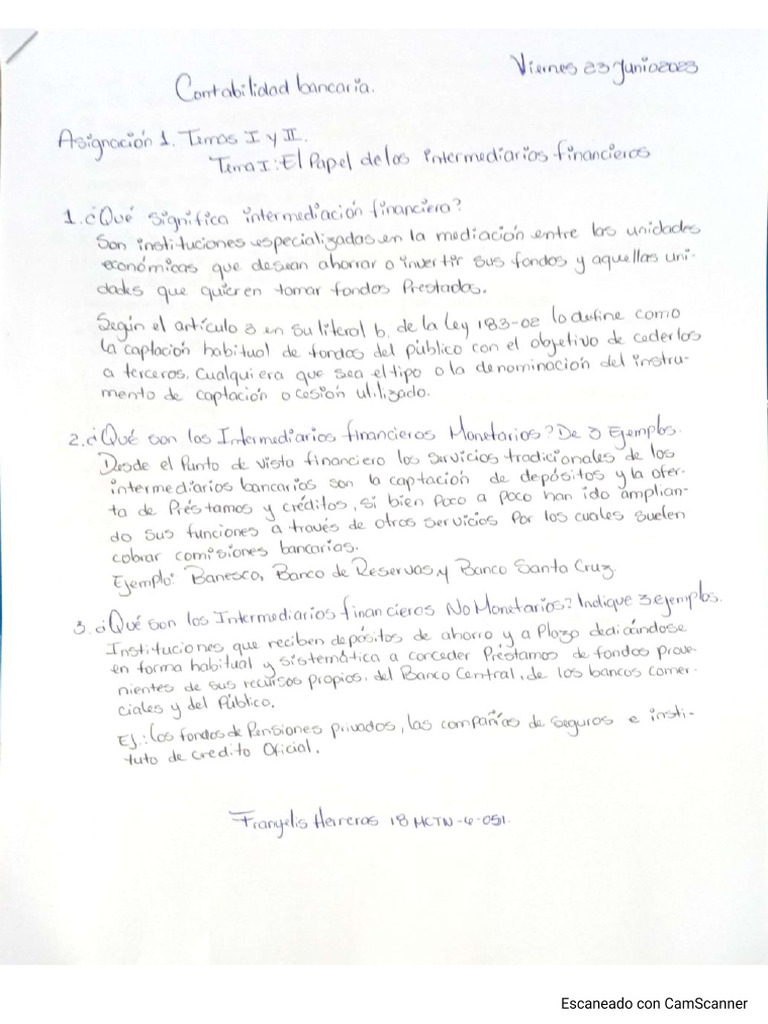 Viernes 23 Junio 2023
Contabilidad bancaria.
Asignación 1. Temas I y II.
Tema I: El Papel de los intermediarios financieros
1. ¿Qué significa intermediación financiera?
Son instituciones especializadas en la mediación entre las unidades
económicas que desean ahorrar o invertir sus fondos y aquellas uni-
dades que quieren tomar fondos Prestados.
Según el artículo 3 en su literal b. de la Ley 183-02 lo define como
la captación habitual de fondos del público con el objetivo de cederlos
a terceros. Cualquiera que sea el tipo o la denominación del instru-
mento de captación o cesión utilizado.
2. ¿Qué son los Intermediarios financieros Monetarios? De 3 Ejemplos.
Desde el Punto de vista financiero los servicios tradicionales de los
intermediarios bancarios son la captación de depósitos y la ofer-
ta de Préstamos y créditos, si bien Poco a poco han ido amplian-
do sus funciones a través de otros servicios Por los cuales suelen
cobrar comisiones bancarias.
Ejemplo: Banesco, Banco de Reservas y Banco Santa Cruz
3. ¿Qué son los Intermediarios financieros No Monetarios? Indique 3 ejemplos.
Instituciones que reciben depósitos de ahorro y a Plazo dedicándose
en forma habitual y sistemática a conceder Préstamos de fondos prove-
nientes de sus recursos propios, del Banco Central, de los bancos comer-
ciales y del Público.
Ej.: Los fondos de Pensiones privados, las compañías de seguros e insti-
tuto de credito Oficial.
Frangelis Herreras 18 MCTN-4-051.
Escaneado con CamScanner